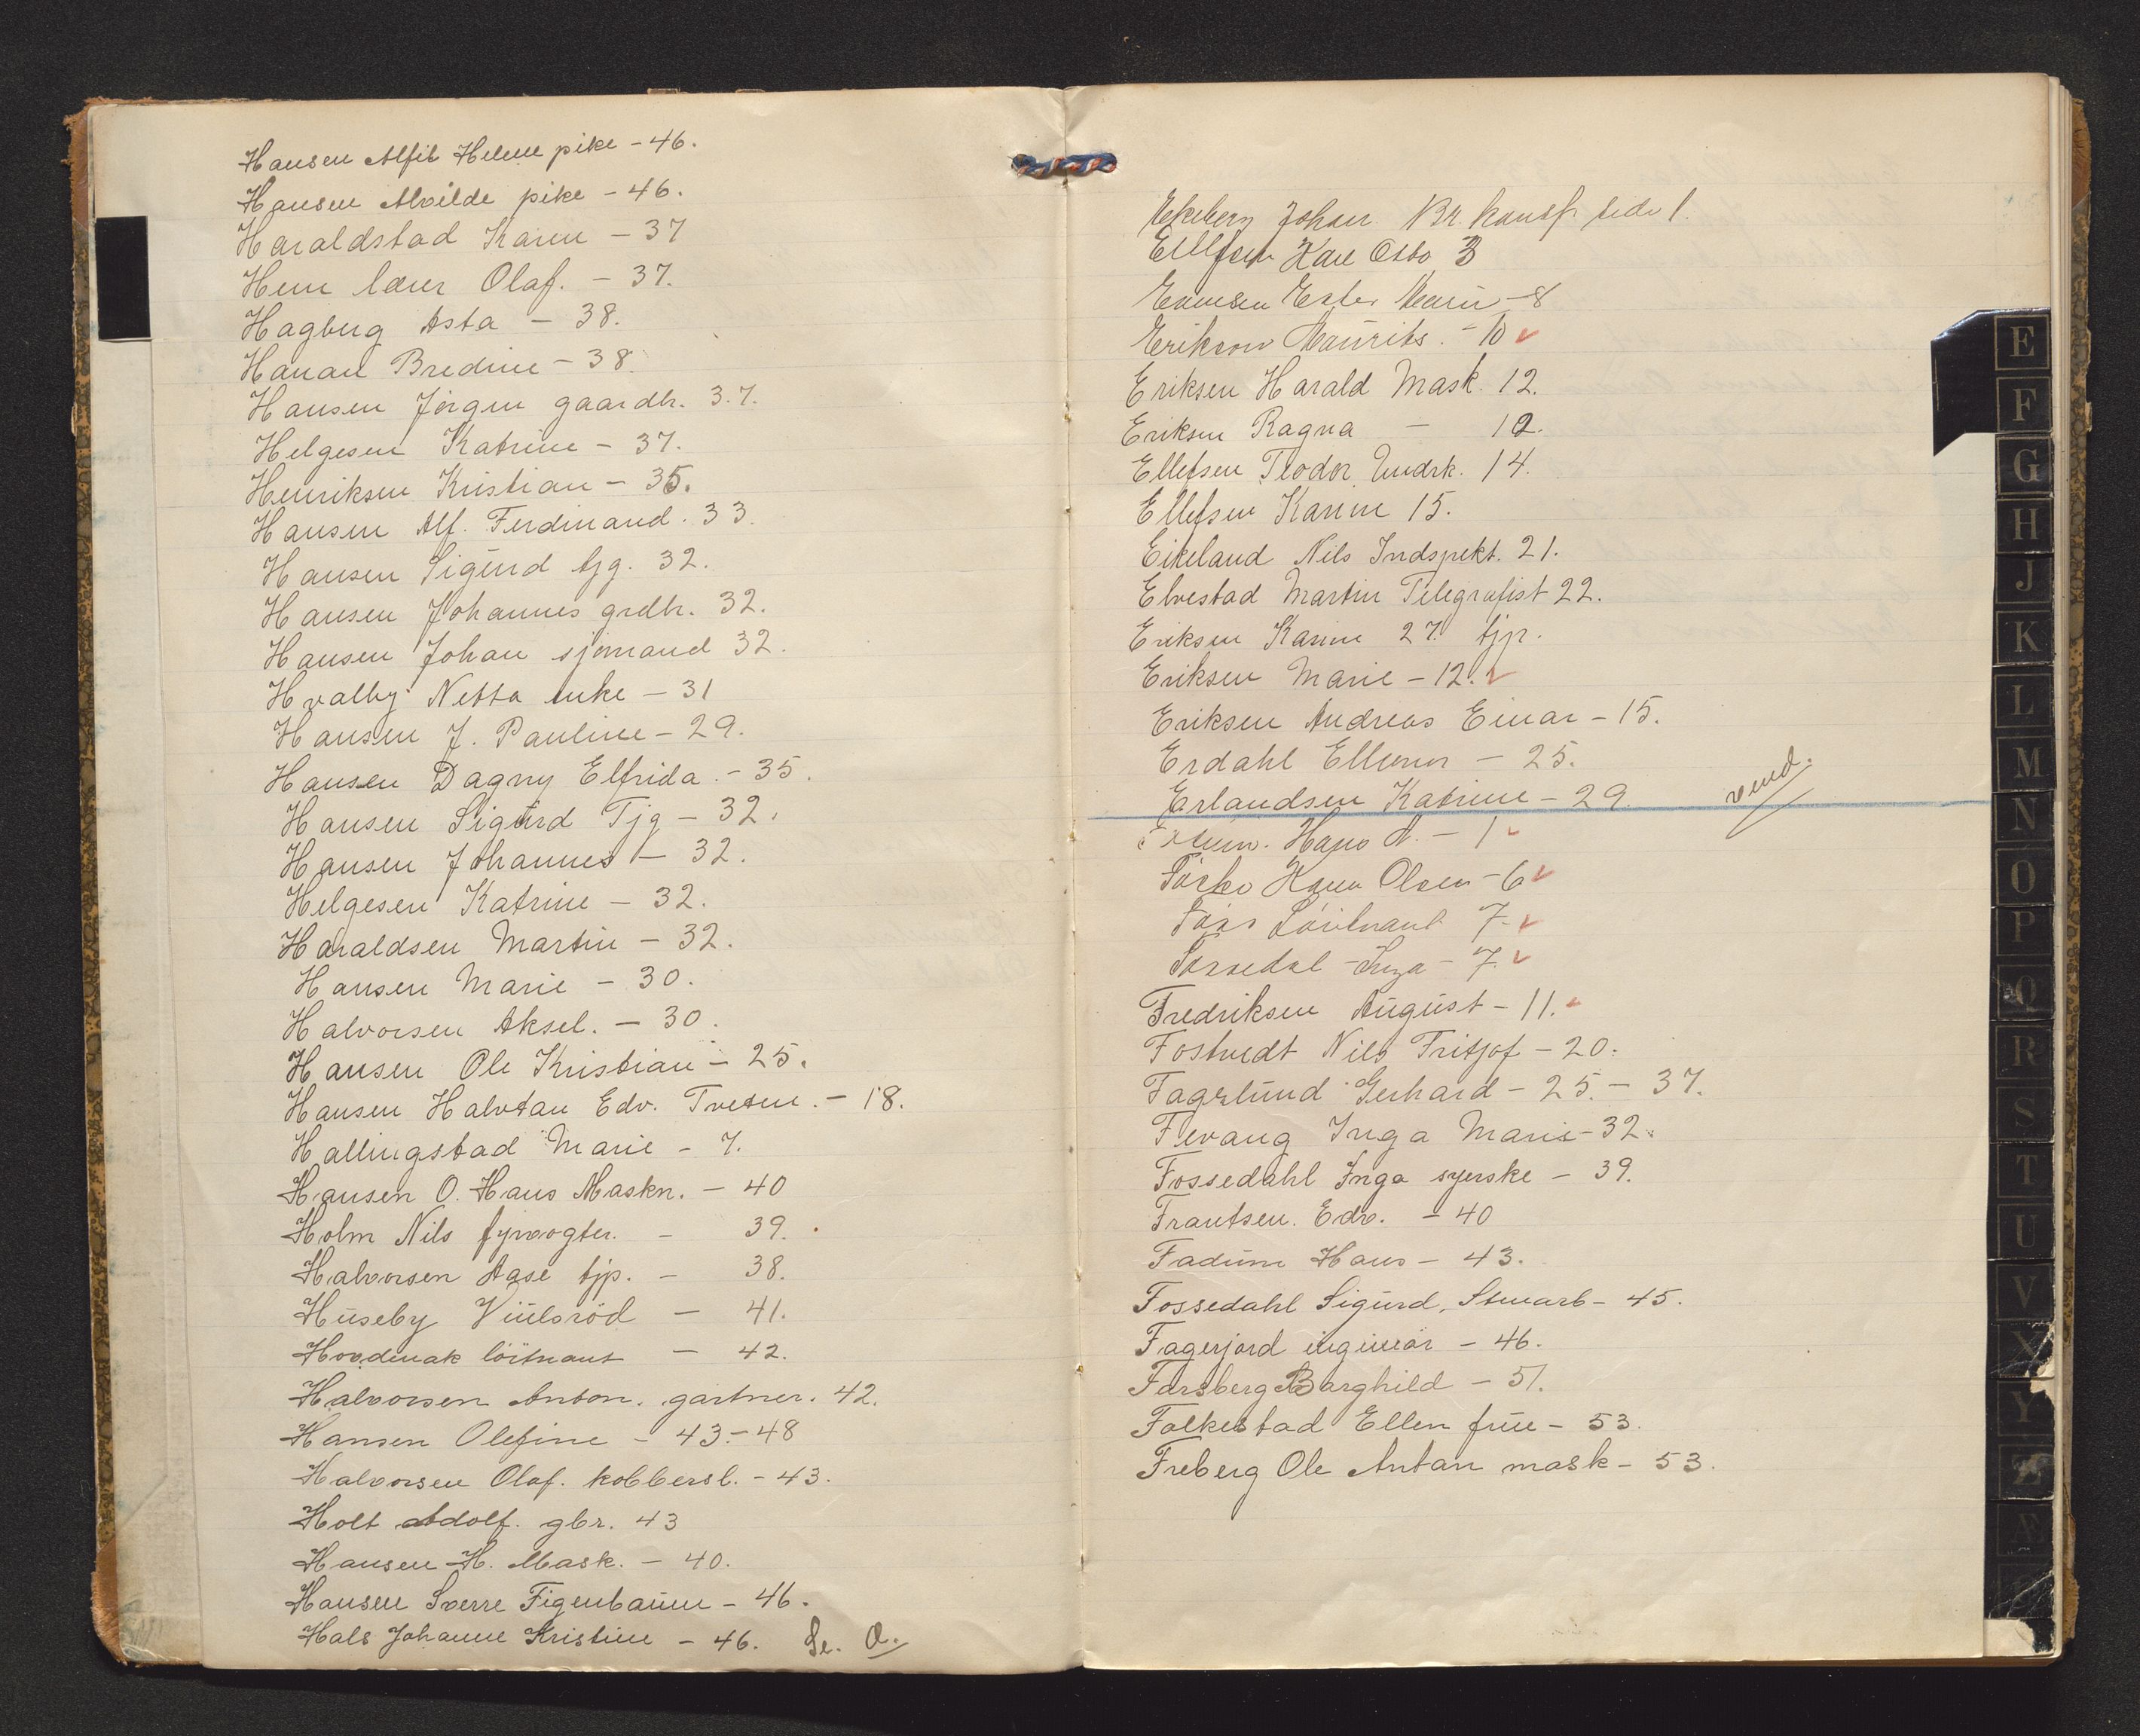 Hansen Alfib Helene pike - 46.
Hansen Alvilde pike - 46.
Haraldstad Karen - 37
Hem lærer Olaf. - 37.
Hagberg Asta - 38.
Hanan Bredine - 38.
Hansen Jörgen gaardbr. 37.
Helgesen Katrine - 37.
Henriksen Kristian - 35.
Hansen Alf. Ferdinand. 33.
Hansen Sigurd tjg. 32.
Hansen Johannes grdbr. 32.
Hansen Johan sjömand 32.
Hvalby Netta enke - 31
Hansen J. Pauline - 29.
Hansen Dagny Elfrida. - 35.
Hansen Sigurd Tjg - 32.
Hansen Johannes - 32.
Helgesen Katrine - 32.
Haraldsen Martin - 32.
Hansen Marie - 30.
Halvorsen Aksel. - 30.
Hansen Ole Kristian - 25.
Hansen Halvtan Edv. Tveten. - 18.
Hallingstad Marie - 7.
Hansen O. Hans Maskn. - 40
Holm Nils fyrvogter. - 39.
Halvorsen Aase tjp. - 38.
Huseby - 41.
Hovdenak löitnant - 42.
Halvorsen Anton. gartner. 42.
Hansen Olefine - 43. - 48
Halvorsen Olaf. kobbersl. - 43.
Holt Adolf. gbr. 43
Hansen H. Mask. - 40.
Hansen Sverre Figenbaum - 46.
Hals Johanne Kristine - 46. Se. A.
Ekeberg Johan Br. side 1.
Ellefsen Kare Osbo 3
Ester Marie - 8
Erikson Maurits. - 10
Eriksen Harald Mask. 12.
Eriksen Ragna - 12.
Ellefsen Teodor 14.
Ellefsen Karine 15.
Eikeland Nils Indspekt. 21.
Elvestad Martin Telegrafist 22.
Eriksen Karine 27. tjp.
Eriksen Marie - 12.
Eriksen Andreas Einar - 15.
Erdahl Ellenor - 25.
Erlandsen Katrine - 29. vend.
Hans A. - 1
Olsen - 6
7.
Fossedal - Inga - 7.
Fredriksen August - 11.
Fostvedt Nils Fritjof - 20.
Fagerlund Gerhard - 25. - 37.
Fevang Inga Marie - 32.
Fossedahl Inga syerske - 39.
Frantsen. Edv. - 40
Fadum Hans - 43.
Fossedahl Sigurd, Stuarb - 45.
Fagerjord ingeniør - 46.
Farsberg Barghild - 51.
Folkestad Ellen frue - 53.
Freberg Ole Antan mask - 53.
E
F
G
H
J
K
L
M
N
O
P
Q
R
S
T
U
V
X
Y
Z
Æ